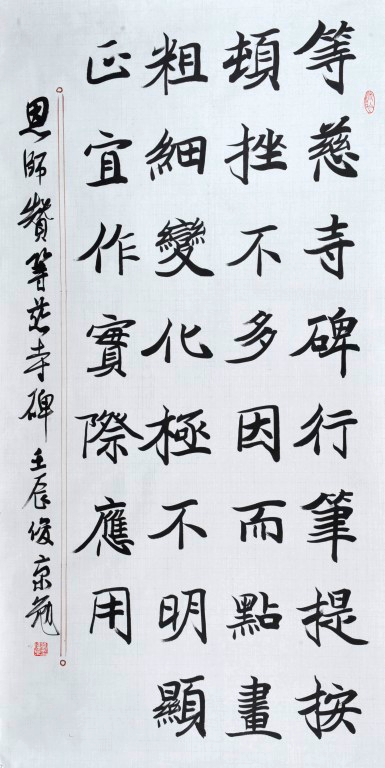 等慈寺碑行筆提按
頓挫不多因而點畫
粗細變化極不明顯
正宜作實際應用
恩師贊等慈寺碑 壬辰俊京勉